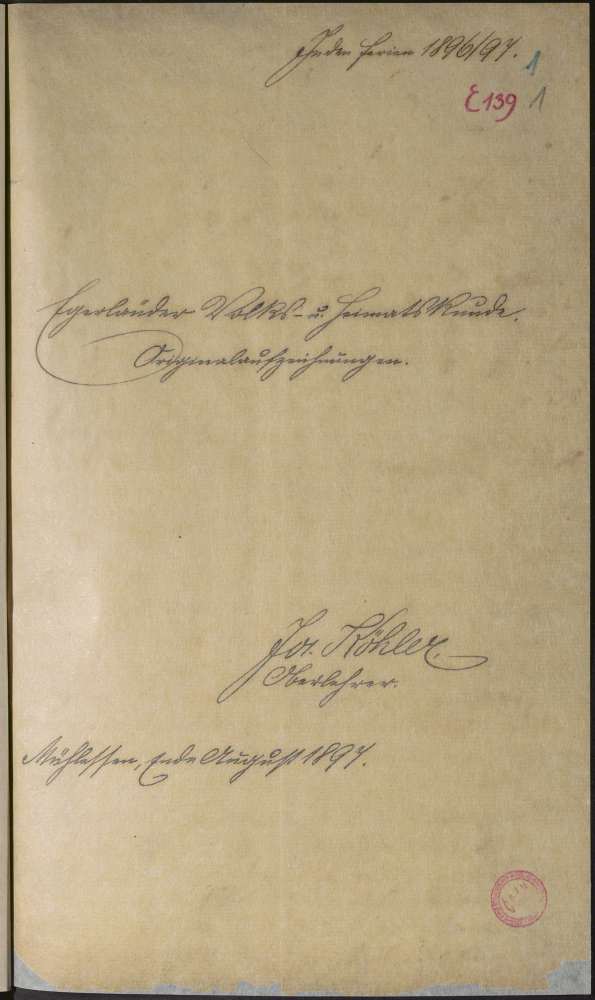 In den Ferien 1896/97.
1
E 139 1
Egerländer Volks- u. Heimatskunde.
Originalaufzeichnungen.
Jos. Köhler
Oberlehrer.
Mühlessen, Ende August 1897.